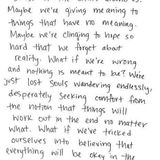 Maybe we're giving meaning to
things that have no meaning.
Maybe we're clinging to hope so
hard that we forget about
reality. What if we're wrong
and nothing is meant to be? We're
just lost souls wandering endlessly,
desperately seeking comfort from
the notion that things will
work out in the end no matter
what. What if we've tricked
ourselves into believing that
everything will be okay in the